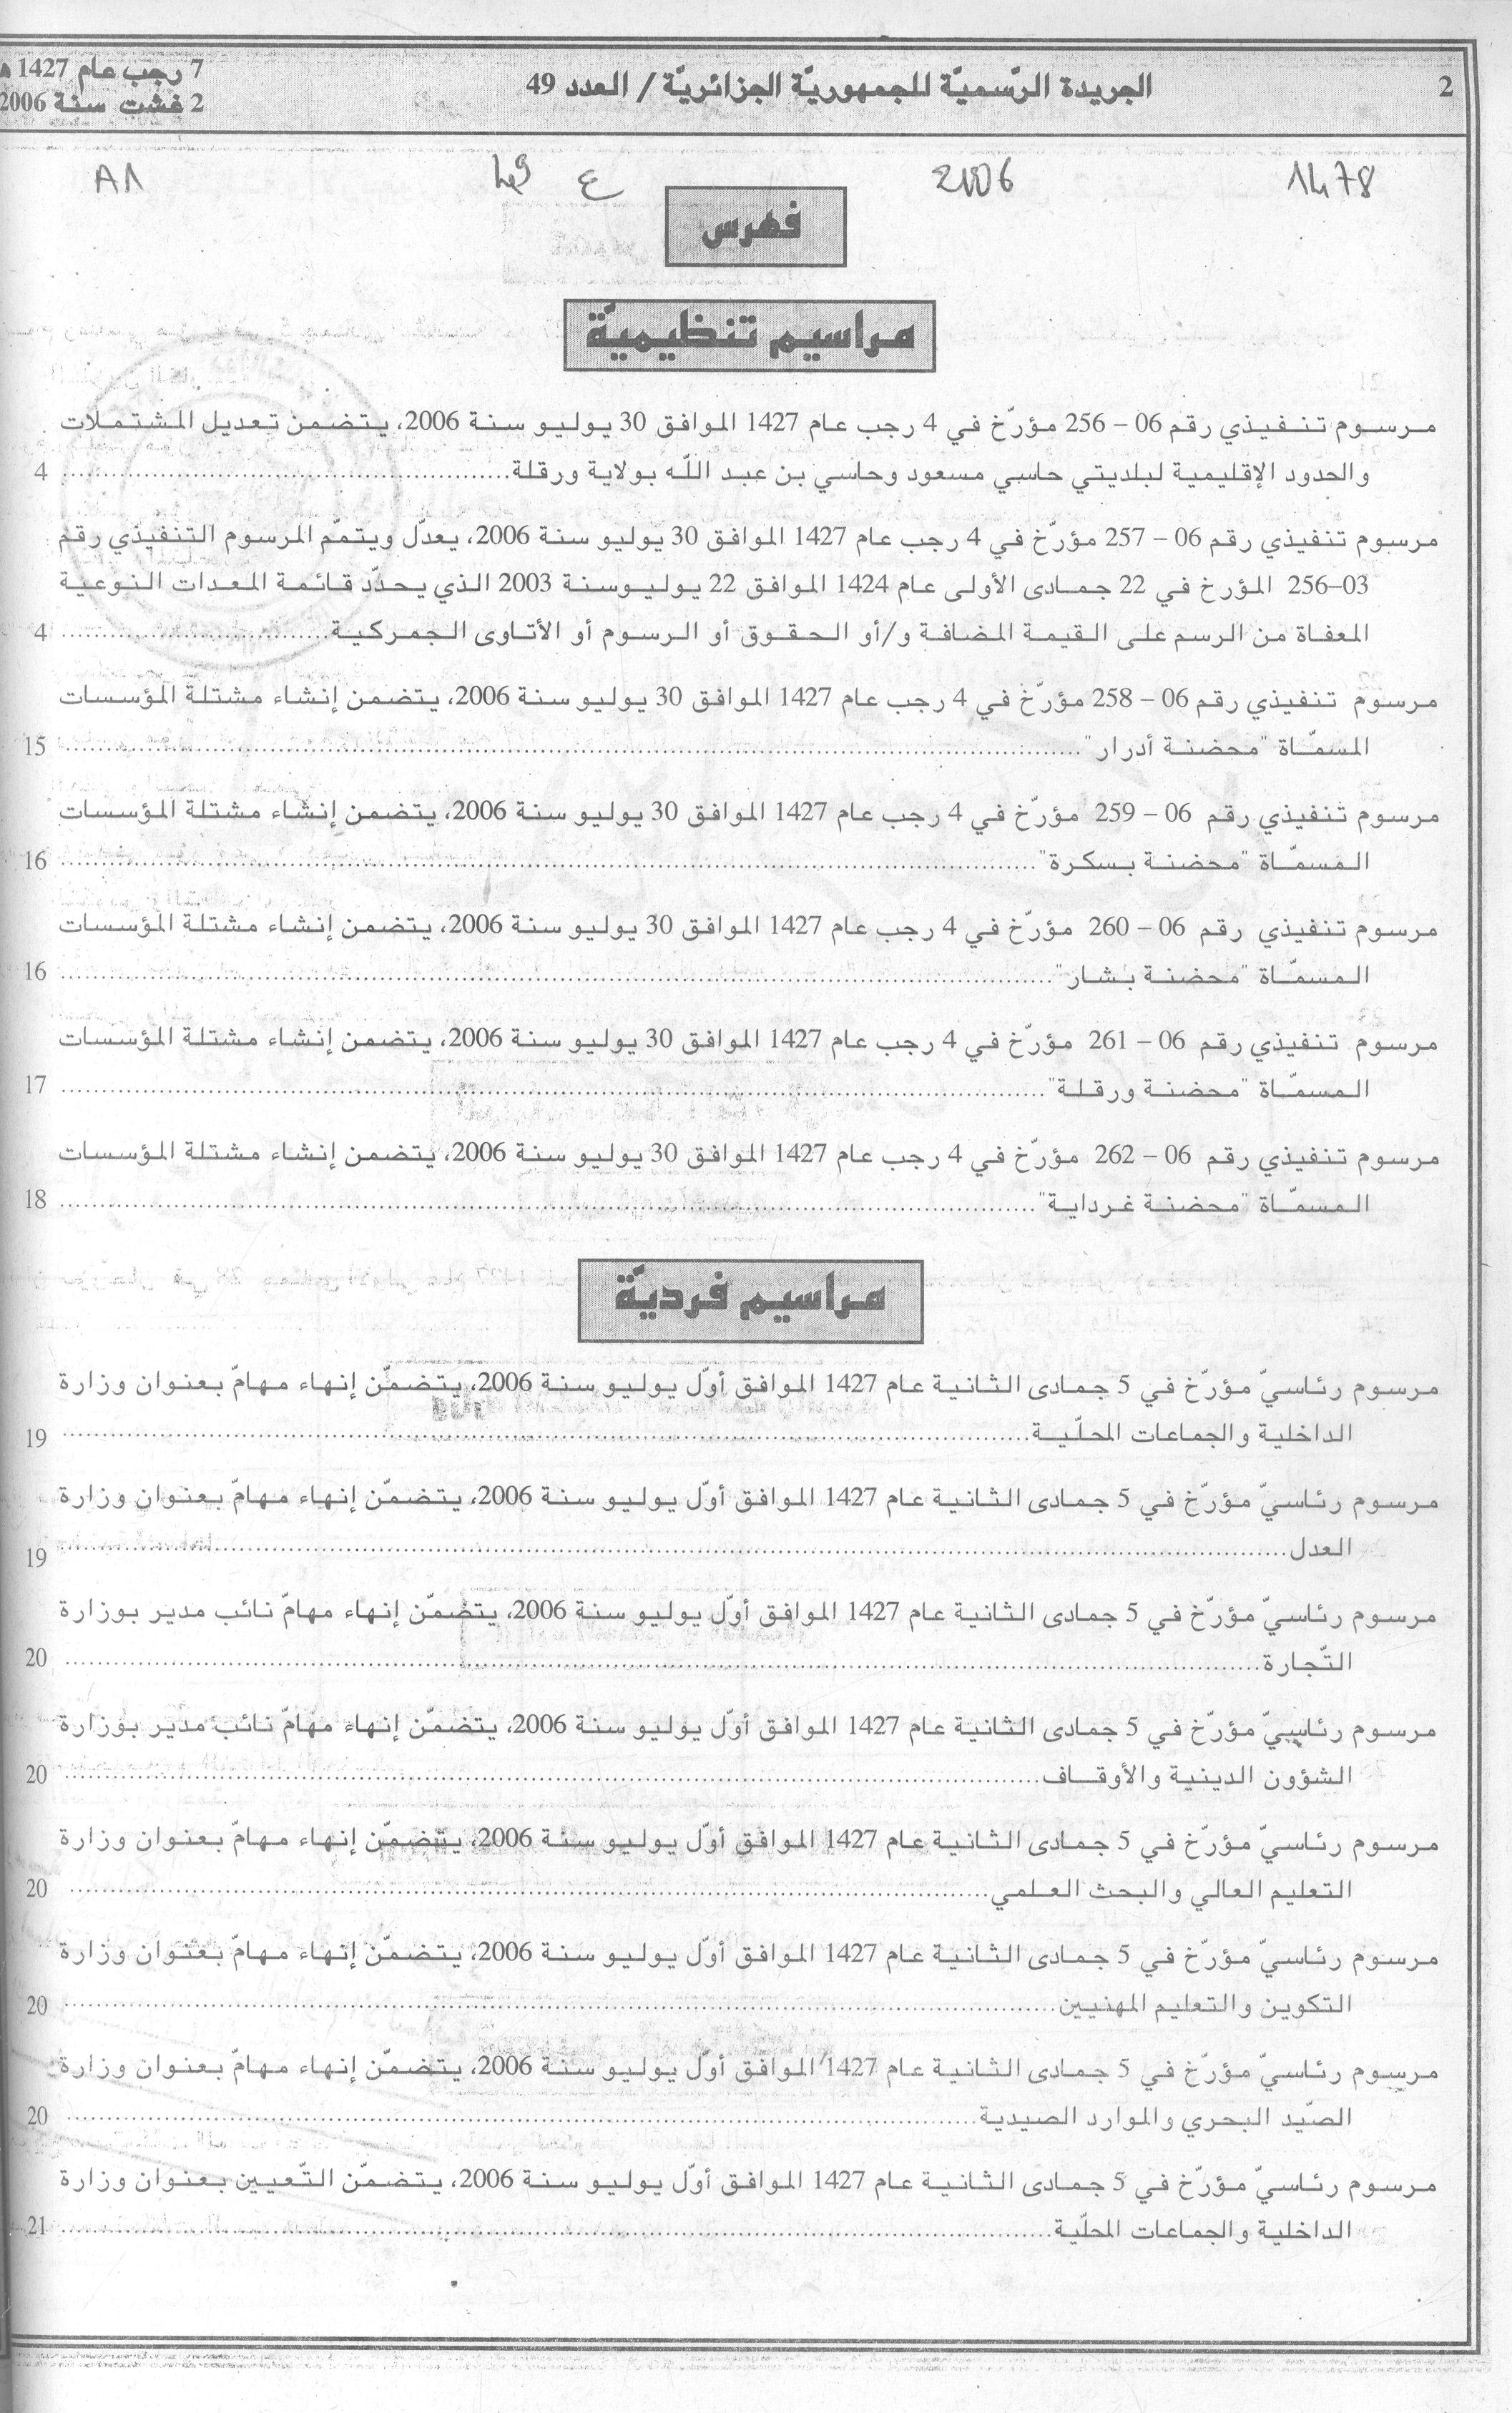 2
الجريدة الرّسميّة للجمهوريّة الجزائريّة / العدد 49
7 رجب عام 1427 هـ
2 غشت سنة 2006
1478 2006 ع 49 A1
فهرس
مراسيم تنظيميّة
مرسوم تنفيذي رقم 06 – 256 مؤرّخ في 4 رجب عام 1427 الموافق 30 يوليو سنة 2006، يتضمن تعديل المشتملات
والحدود الإقليمية لبلديتي حاسي مسعود وحاسي بن عبد اللّه بولاية ورقلة.......... 4
مرسوم تنفيذي رقم 06 – 257 مؤرّخ في 4 رجب عام 1427 الموافق 30 يوليو سنة 2006، يعدّل ويتمّم المرسوم التنفيذي رقم
03–256 المؤرخ في 22 جمادى الأولى عام 1424 الموافق 22 يوليوسنة 2003 الذي يحدّد قائمة المعدات النوعية
المعفاة من الرسم على القيمة المضافة و/أو الحقوق أو الرسوم أو الأتاوى الجمركية.......... 4
مرسوم تنفيذي رقم 06 – 258 مؤرّخ في 4 رجب عام 1427 الموافق 30 يوليو سنة 2006، يتضمن إنشاء مشتلة المؤسسات
المسمّاة "محضنة أدرار".......... 15
مرسوم تنفيذي رقم 06 – 259 مؤرّخ في 4 رجب عام 1427 الموافق 30 يوليو سنة 2006، يتضمن إنشاء مشتلة المؤسسات
المسمّاة "محضنة بسكرة".......... 16
مرسوم تنفيذي رقم 06 – 260 مؤرّخ في 4 رجب عام 1427 الموافق 30 يوليو سنة 2006، يتضمن إنشاء مشتلة المؤسسات
المسمّاة "محضنة بشار".......... 16
مرسوم تنفيذي رقم 06 – 261 مؤرّخ في 4 رجب عام 1427 الموافق 30 يوليو سنة 2006، يتضمن إنشاء مشتلة المؤسسات
المسمّاة "محضنة ورقلة".......... 17
مرسوم تنفيذي رقم 06 – 262 مؤرّخ في 4 رجب عام 1427 الموافق 30 يوليو سنة 2006، يتضمن إنشاء مشتلة المؤسسات
المسمّاة "محضنة غرداية".......... 18
مراسيم فرديّة
مرسوم رئاسيّ مؤرّخ في 5 جمادى الثانية عام 1427 الموافق أوّل يوليو سنة 2006، يتضمّن إنهاء مهامّ بعنوان وزارة
الداخلية والجماعات المحلّيـة.......... 19
مرسوم رئاسيّ مؤرّخ في 5 جمادى الثانية عام 1427 الموافق أوّل يوليو سنة 2006، يتضمّن إنهاء مهامّ بعنوان وزارة
العدل.......... 19
مرسوم رئاسيّ مؤرّخ في 5 جمادى الثانية عام 1427 الموافق أوّل يوليو سنة 2006، يتضمّن إنهاء مهامّ نائب مدير بوزارة
التّجارة.......... 20
مرسوم رئاسيّ مؤرّخ في 5 جمادى الثانية عام 1427 الموافق أوّل يوليو سنة 2006، يتضمّن إنهاء مهامّ نائب مدير بوزارة
الشؤون الدينية والأوقـاف.......... 20
مرسوم رئاسيّ مؤرّخ في 5 جمادى الثانية عام 1427 الموافق أوّل يوليو سنة 2006، يتضمّن إنهاء مهامّ بعنوان وزارة
التعليم العالي والبحث العلمي.......... 20
مرسوم رئاسيّ مؤرّخ في 5 جمادى الثانية عام 1427 الموافق أوّل يوليو سنة 2006، يتضمّن إنهاء مهامّ بعنوان وزارة
التكوين والتعليم المهنيين.......... 20
مرسوم رئاسيّ مؤرّخ في 5 جمادى الثانية عام 1427 الموافق أوّل يوليو سنة 2006، يتضمّن إنهاء مهامّ بعنوان وزارة
الصّيد البحري والموارد الصيدية.......... 20
مرسوم رئاسيّ مؤرّخ في 5 جمادى الثانية عام 1427 الموافق أوّل يوليو سنة 2006، يتضمّن التّعيين بعنوان وزارة
الداخلية والجماعات المحلّية.......... 21